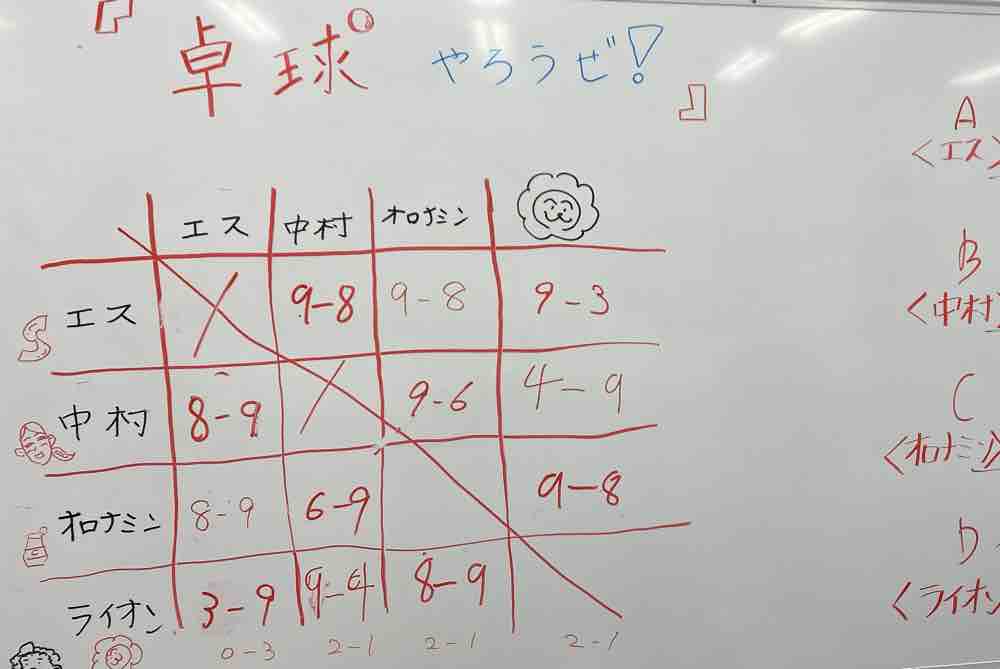 『卓球。やろうぜ!』
エス 中村 オロナミン
エス 9-8 9-8 9-3
中村 8-9 9-6 4-9
オロナミン 8-9 6-9 9-8
ライオン 3-9 9-4 8-9
0-3 2-1 2-1 2-1
A
<エス>
B
<中村>
C
<オロナミン>
D
<ライオン